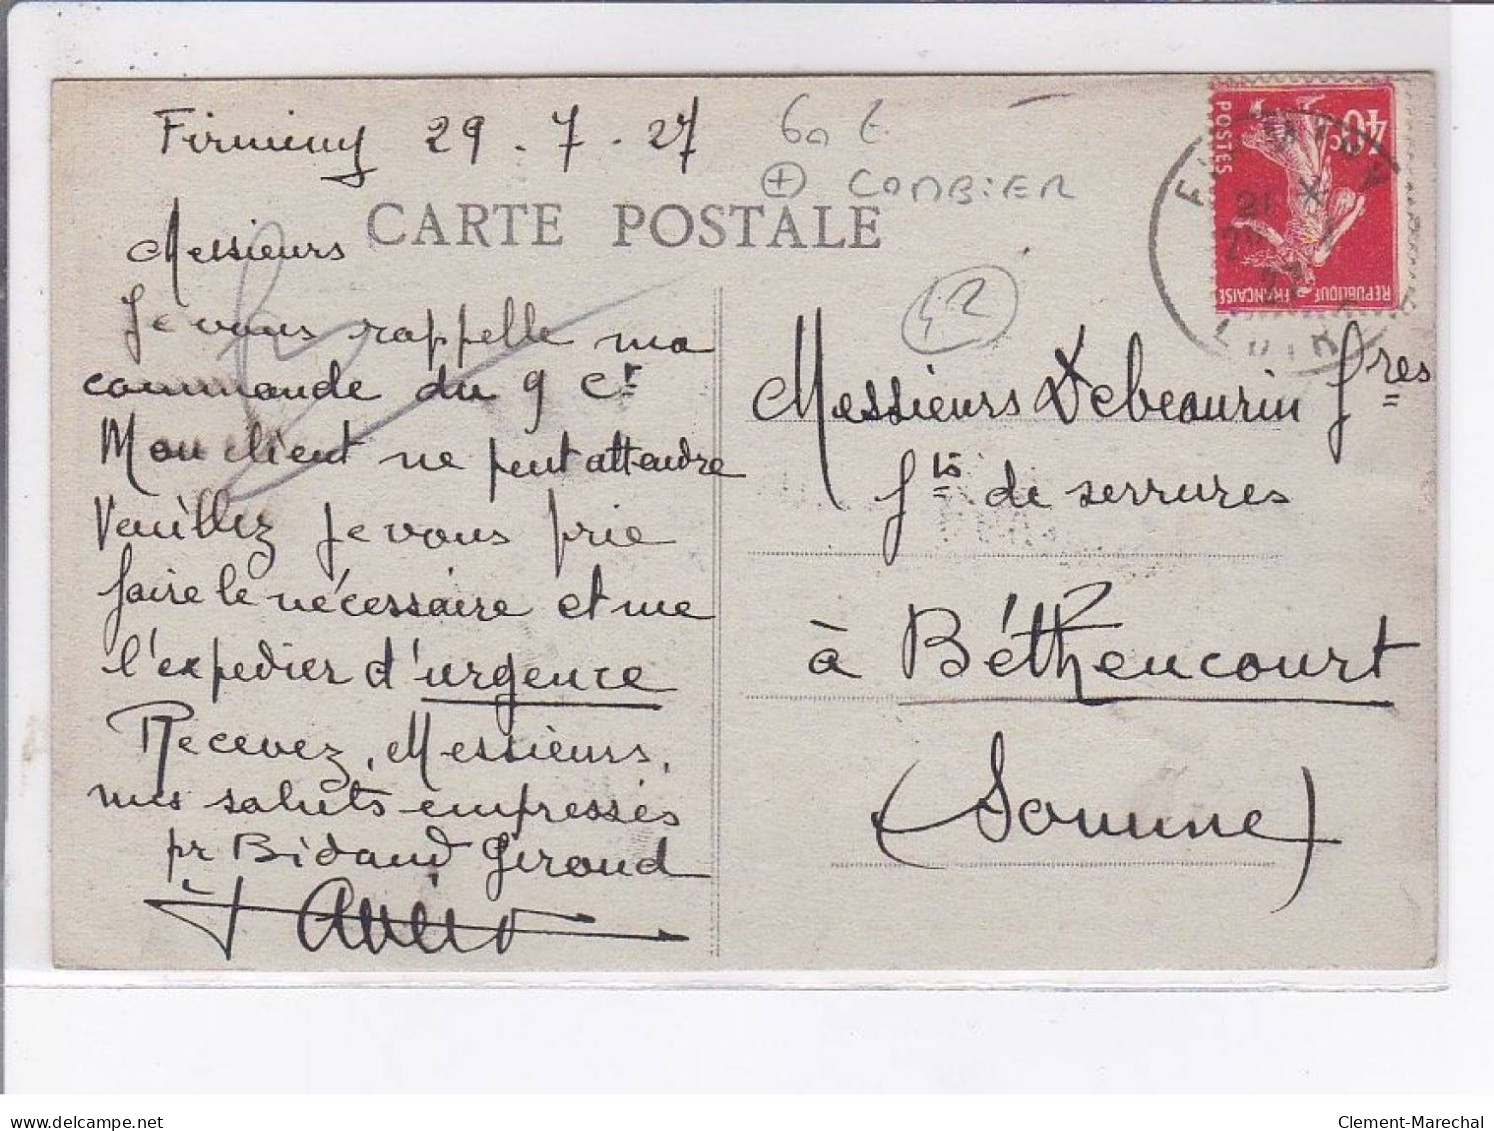 Firminy 29-7-27
60 E
+ COMBIER
CARTE POSTALE
42
Messieurs
Je vous rappelle ma
commande du 9 Cr
Mon client ne peut attendre
Veuillez je vous prie
faire le nécessaire et me
l'expedier d'urgence
Recevez, Messieurs,
mes saluts empressés
pr Bidaud Giroud
40c
POSTES
REPUBLIQUE FRANÇAISE
LOIRE
Messieurs Debeaurin fres
fts de serrures
à Béthencourt
(Somme)
delcampe.net
Clement-Marechal